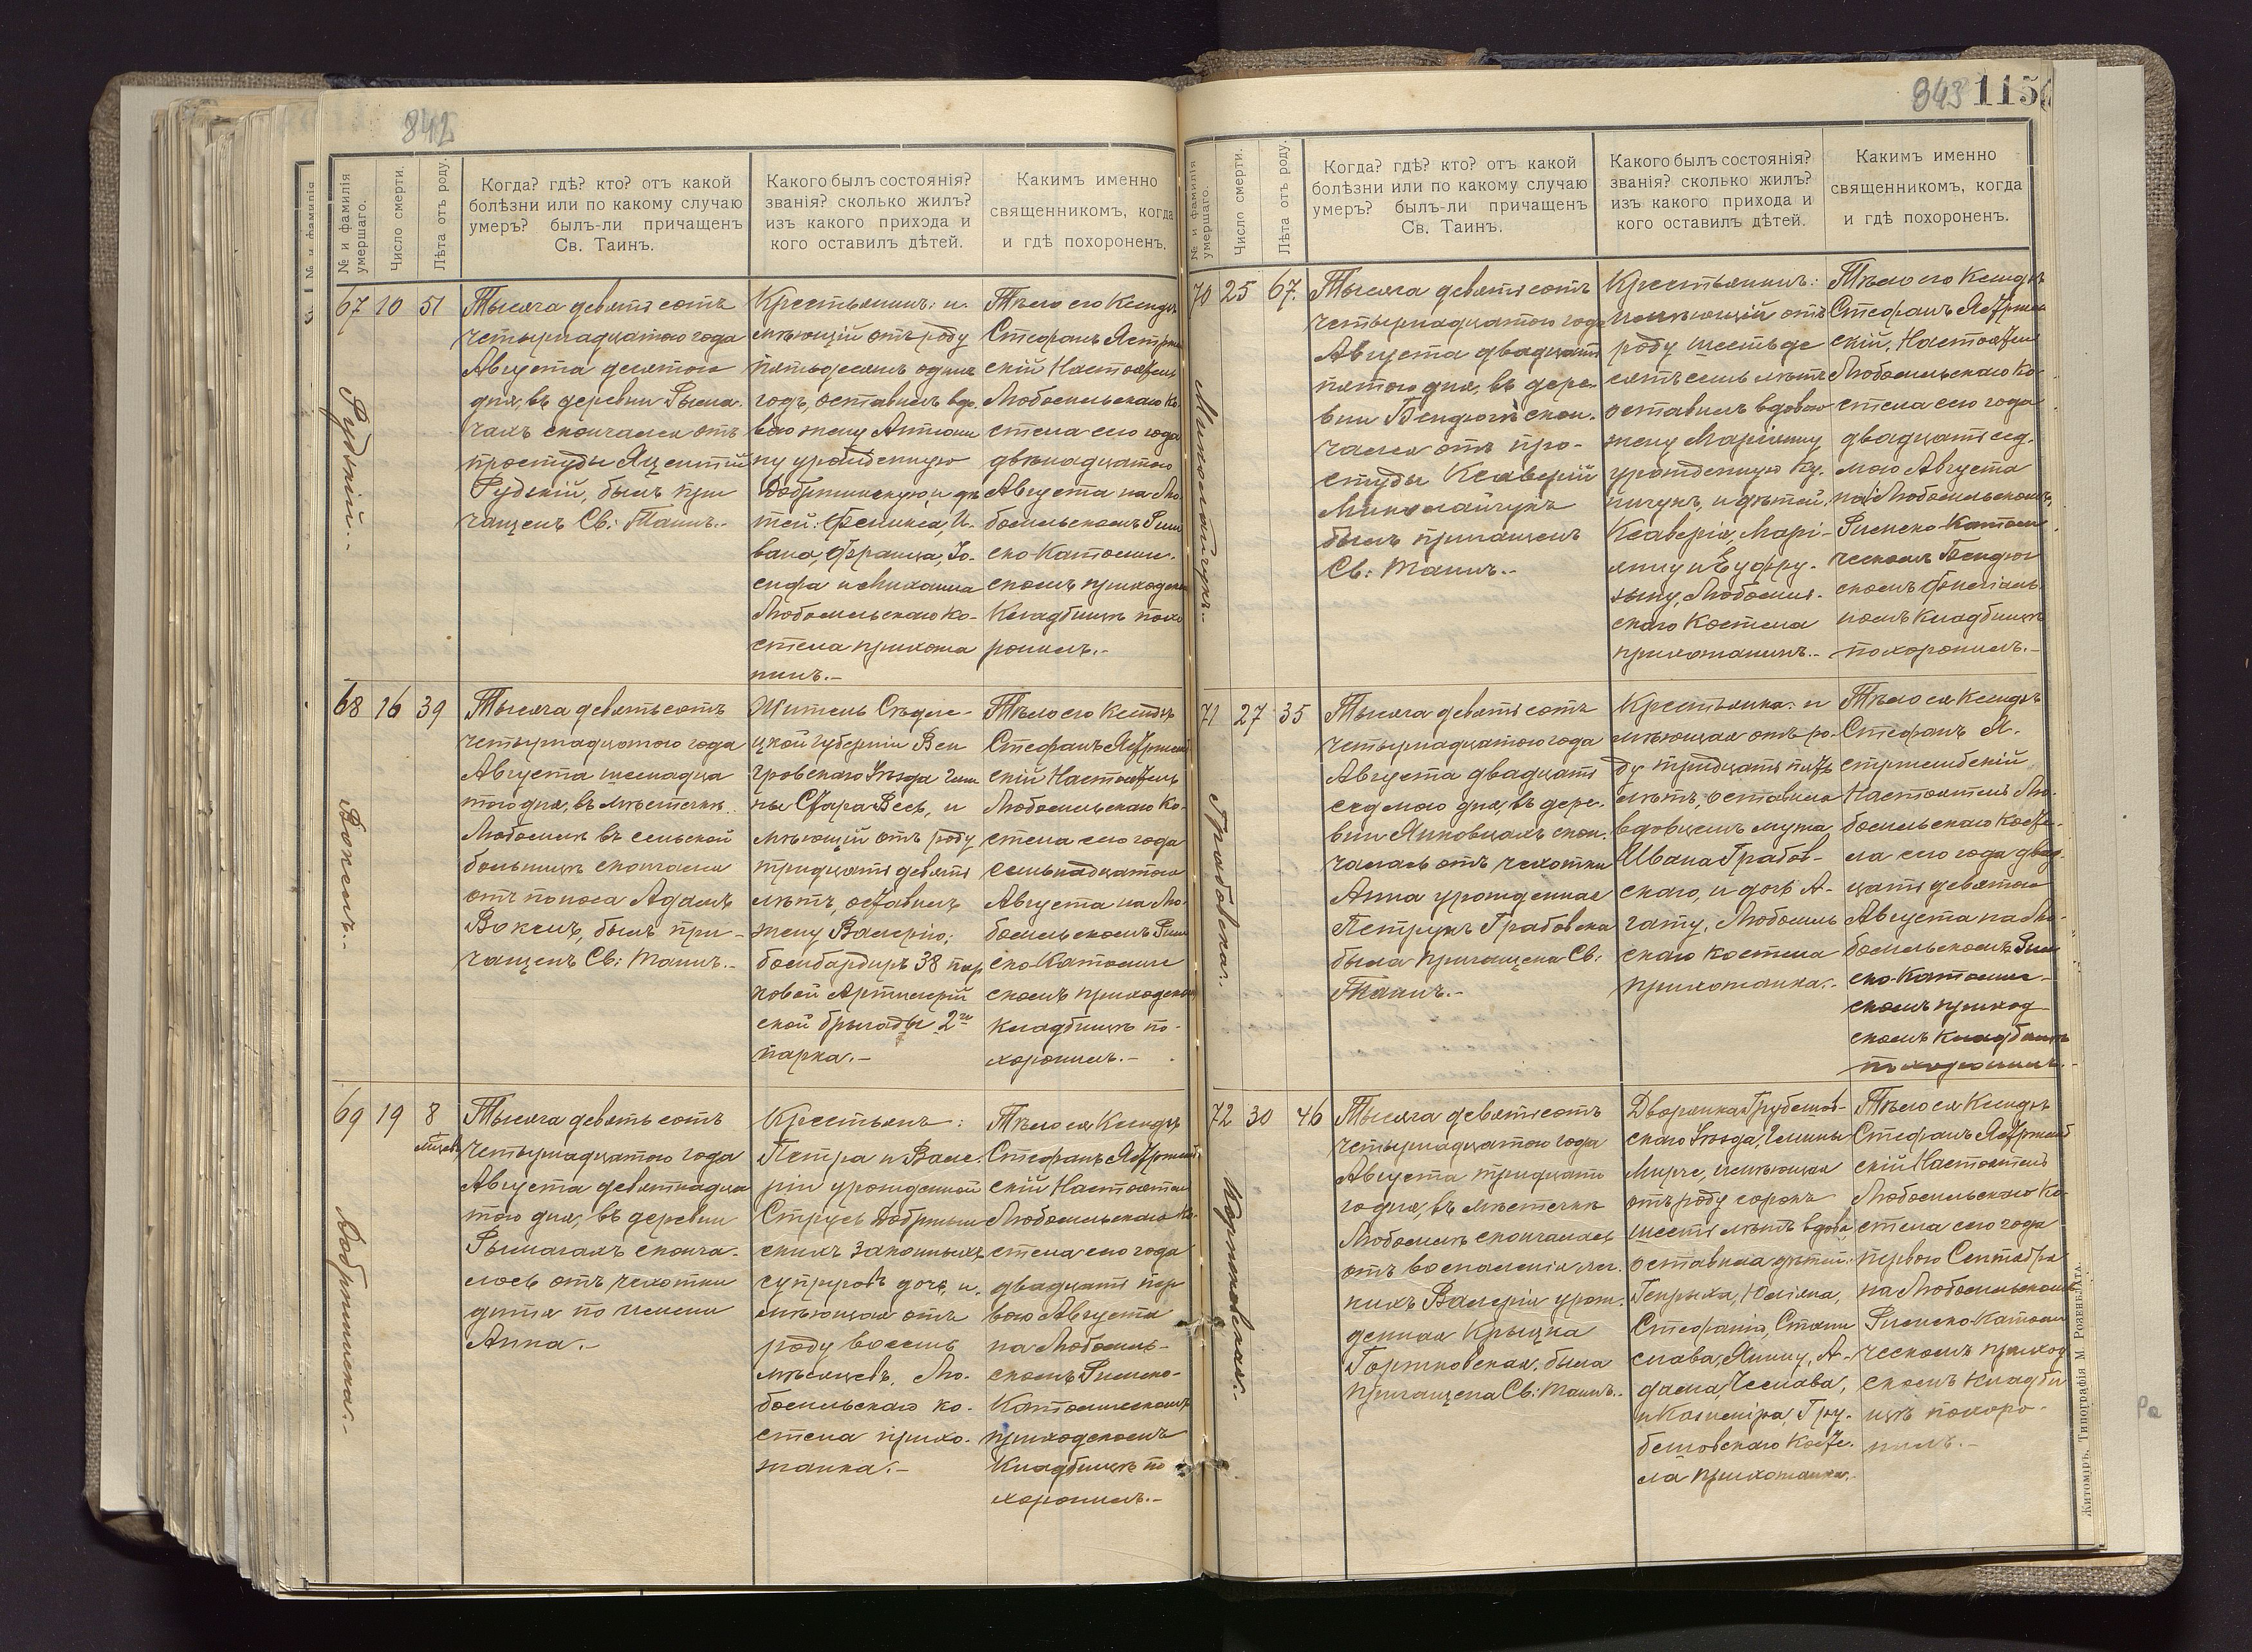 842
№ и фамилія умершаго.
Число смерти.
Лѣта отъ роду.
Когда? гдѣ? кто? отъ какой
болѣзни или по какому случаю
умеръ? былъ-ли причащенъ
Св. Таинъ.
Какого былъ состоянія?
званія? сколько жилъ?
изъ какого прихода и
кого оставилъ дѣтей.
Какимъ именно
священникомъ, когда
и гдѣ похороненъ.
67 10 51
Рудскій.-
Тысяча девятьсотъ
четырнадцатого года
Августа десятого
дня, въ деревни Рыма-
чахъ скончался отъ
простуды Яцентій
Рудскій, былъ при
чащенъ Св: Таинъ.-
Крестьянинъ: и-
мѣющій отъ роду
пятьдесятъ одинъ
годъ, оставилъ вдо-
вою жену Антони
ну урожденную
Добрынскую, и дѣ
тей: Феликса, И-
вана, Франца, Іо-
сифа и Михаила
Любомльскаго ко-
стела прихожа
нинъ.-
Тѣло его Ксендзъ
Стефанъ Ястржем
скій Настоятель
Любомльскаго Ко-
стела сего года
двѣнадцатого
Августа на Лю-
бомльскомъ Рим
ско-Католиче-
скомъ приходскомъ
Кладбищѣ похо
ронилъ.-
68 16 39
Вокель.-
Тысяча девятьсотъ
четырнадцатого года
Августа шеснадца
того дня, въ мѣстечкѣ
Любомлѣ въ сельской
больницѣ скончался
отъ поноса Адамъ
Вокель, былъ при-
чащенъ Св: Таинъ.-
Житель Сѣдле-
цкой губерніи Вен
гровскаго Уѣзда гми
ны Стара Весь, и
мѣющій отъ роду
тридцать девять
лѣтъ, оставилъ
жену Валерію;
бомбардиръ 38 пар
ковой Артилерій
ской бригады 2го
парка.-
Тѣло его Ксендзъ
Стефанъ Ястржемб
скій Настоятель
Любомльскаго Ко-
стела сего года
семьнадцатого
Августа на Лю-
бомльскомъ Рим
ско-Католиче
скомъ приходскомъ
кладбищѣ по-
хоронилъ.-
69 19 8
мѣсяц.
Добрынинска.-
Тысяча девятьсотъ
четырнадцатого года
Августа девятнадца
того дня, въ деревни
Рымачахъ сконча-
лось отъ чехотки
дитя по имени
Анна.-
Крестьянъ:
Петра и Вале-
ріи урожденной
Струсь Добрынин
скихъ законныхъ
супруговъ дочь, и-
мѣющая отъ
роду восемь
мѣсяцевъ, Лю-
бомльскаго ко-
стела прихо-
жанка.-
Тѣло ея Ксендзъ
Стефанъ Ястржемб
скій Настоятель
Любомльскаго Ко-
стела сего года
двадцать пер
вого Августа
на Любомль-
скомъ Римско-
Католическомъ
приходскомъ
Кладбищѣ по
хоронилъ.-
843 115
№ и фамилія умершаго.
Число смерти.
Лѣта отъ роду.
Когда? гдѣ? кто? отъ какой
болѣзни или по какому случаю
умеръ? былъ-ли причащенъ
Св. Таинъ.
Какого былъ состоянія?
званія? сколько жилъ?
изъ какого прихода и
кого оставилъ дѣтей.
Какимъ именно
священникомъ, когда
и гдѣ похороненъ.
70 25 67.
Миколайчукъ.-
Тысяча девятьсотъ
четырнадцатого года
Августа двадцать
пятого дня, въ дере-
вни Бендюгѣ скон-
чался отъ про-
студы Ксаверій
Миколайчукъ
былъ причащенъ
Св: Таинъ.-
Крестьянинъ:
имѣющій отъ
роду шестьде
сятъ семь лѣтъ
оставилъ вдовою
жену Маріанну
урожденную Ку-
ничукъ, и дѣтей,
Ксаверія, Марі-
янну и Еуфру-
зыну, Любомль-
скаго Костела
прихожанинъ.-
Тѣло его Ксендзъ
Стефанъ Ястржем
скій, Настоятель
Любомльскаго Ко-
стела сего года
двадцать сед-
мого Августа
на Любомльскомъ
Римско-Католи
ческомъ Бендюг
скомъ Филіаль-
номъ Кладбищѣ
похоронилъ.-
71 27 35
Грабовска.-
Тысяча девятьсотъ
четырнадцатого года
Августа двадцать
седмого дня, въ дере-
вни Янковцахъ скон-
чалась отъ чехотки
Анна урожденная
Петрукъ Грабовска
была причащена Св:
Таинъ.-
Крестьянка: и
мѣющая отъ ро-
ду тридцать пять
лѣтъ, оставила
вдовцемъ мужа
Ивана Грабов-
скаго, и дочь А-
гату, Любомль
скаго костела
прихожанка.-
Тѣло ея Ксендзъ
Стефанъ Я-
стржембскій
Настоятель Лю-
бомльскаго Косте-
ла сего года двад-
цать девятого
Августа на Лю-
бомльскомъ Рим
ско-Католиче-
скомъ приход
скомъ Кладбищѣ
похоронилъ.-
72 30 46
Тысяча девятьсотъ
четырнадцатого года
Августа тридцато
го дня, въ мѣстечкѣ
Любомлѣ скончалась
отъ воспаленія лег-
кихъ Валерія урож-
денная Крыцка
Горжковская, была
причащена Св: Таинъ.-
Дворянка Грубешов-
скаго Уѣзда, Гмины
Мирче, имѣющая
отъ роду сорокъ
шесть лѣтъ вдова
оставила дѣтей:
Генрыха, Юліяна,
Стефанію, Стани
слава, Янину, А-
дама, Чеслава,
и Казиміра, Гру-
бешовскаго Косте-
ла прихожанка.-
Тѣло ея Ксендзъ
Стефанъ Ястржемб
скій Настоятель
Любомльскаго Ко-
стела сего года
первого Сентября
на Любомльскомъ
Римско-Католи
ческомъ приход
скомъ Кладби
щѣ похоро-
нилъ.-
Житоміръ. Типографія М. Розенблата.